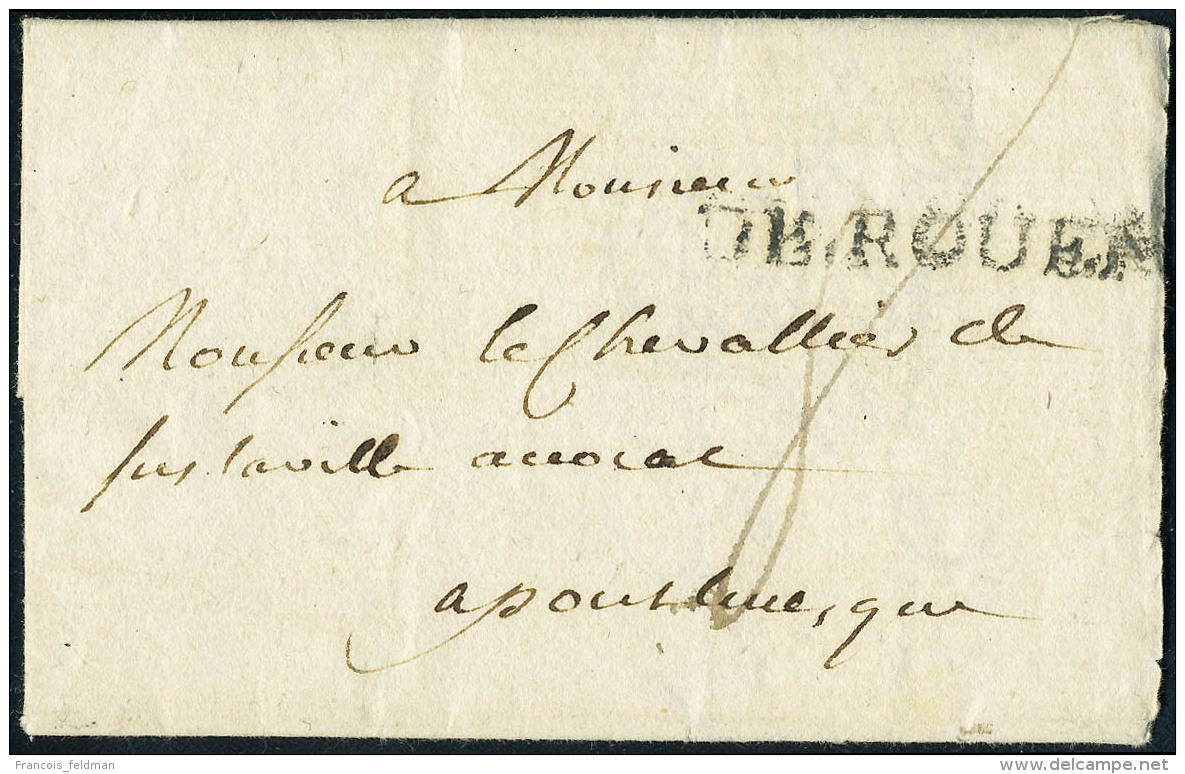 a Monsieur
DE ROUEN
Monsieur le Chevallier de
fustaville avocat
a pontlevesque
Francois_feldman
www.delcampe.net